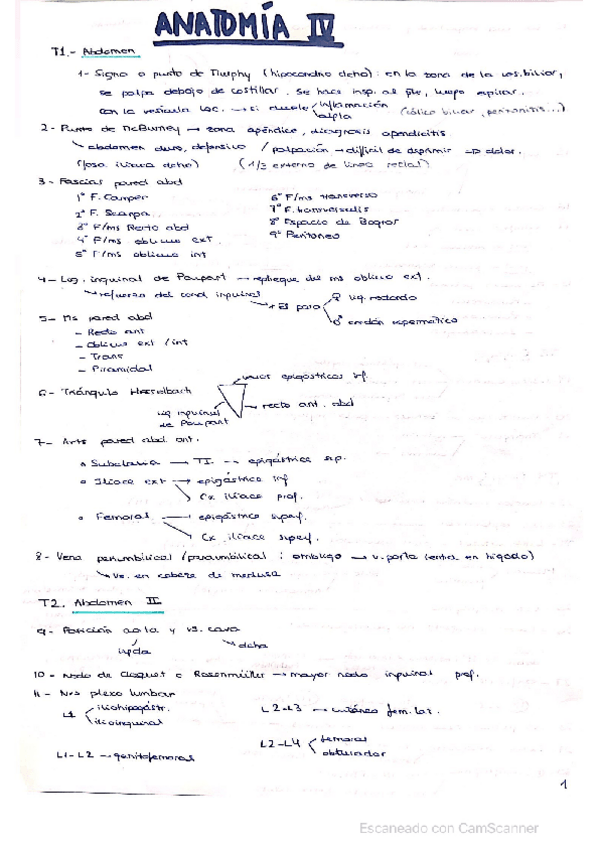 ANATOMÍA IV
T1.- Abdomen
1- Signo o punto de Murphy (hipocondrio dcho): en la zona de la ves. biliar,
se palpa debajo de costillar. Se hace insp. al pte, luego espirar.
con la vesícula loc. → si duele inflamación (cólico biliar, peritonitis...)
2- Punto de McBurney → zona apéndice, diagnosis apendicitis
abdomen duro, defensivo / palpación → difícil de deprimir => dolor.
(fosa ilíaca dcha) (1/3 externo de línea
3- Fascias pared abd
1º F. Camper 6º F/ms transverso
2º F. Scarpa 7º F. transversalis
3º F/ms Recto abd 8º Espacio de Bogros
4º F/ms oblicuo ext. 9º Peritoneo
5º F/ms oblicuo int
4- Lig. inguinal de Poupart → repliegue del ms oblicuo ext.
refuerzo del cond. inguinal → Es paso ♀ lig. redondo
♂ cordón espermático
5- Ms pared abd
- Recto ant
- Oblicuo ext / int
- Trans
- Piramidal
6- Triángulo Hesselbach vasos epigástricos inf.
recto ant. abd
lig inguinal
de Poupart
7- Arts pared abd. ant.
• Subclavia → T.I. -- epigástrica sup.
• Ilíaca ext → epigástrica inf
Cx ilíaca prof.
• Femoral → epigástrica superf.
Cx ilíaca superf.
8- Vena periumbilical / paraumbilical : ombligo → v. porta (entra en hígado)
Vs. en cabeza de medusa
T2. Abdomen II
9- Posición aorta y vs. cava
izqda dcha
10- Nodo de Cloquet o Rosenmüller → mayor nodo inguinal prof.
11- Nvs plexo lumbar
L1 iliohipogástr. L2-L3 → cutáneo fem. lat.
ilioinguinal
L2-L4 femoral
L1-L2 - genitofemoral obturador
1
Escaneado con CamScanner